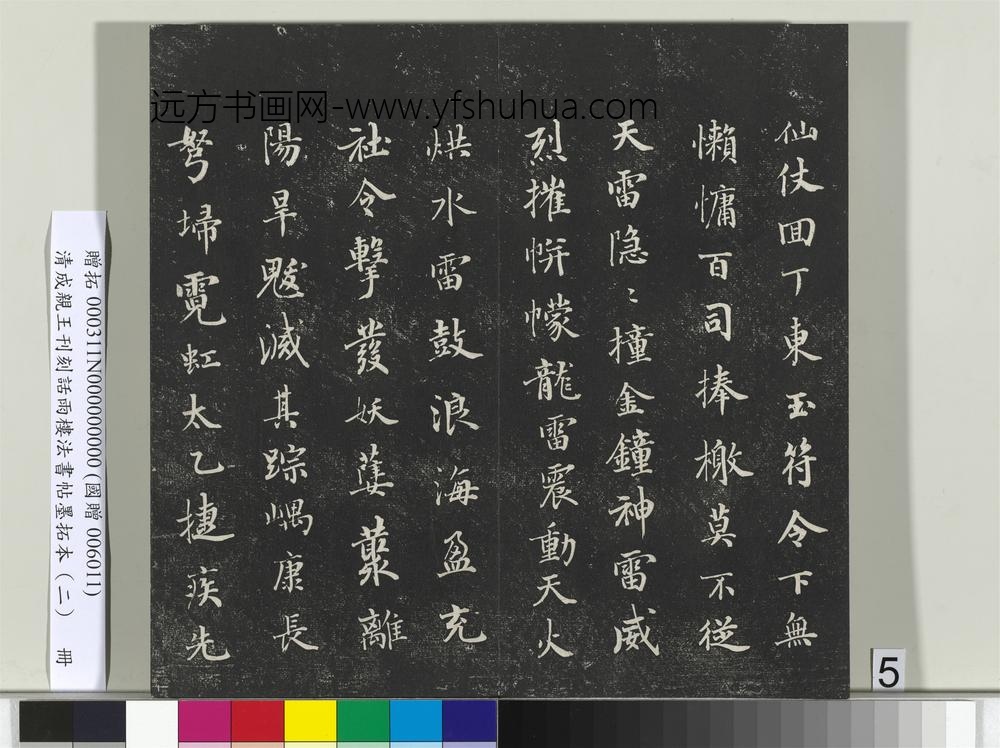 仙仗囬丁東玉符令下無
懶慵百司捧檄莫不從
天雷隐〻撞金鐘神雷威
烈摧帡幪龍雷震動天火
烘水雷鼓浪海盈充
社令擊發妖蘖叢離
陽旱魃滅其踪嵎康長
弩埽霓虹太乙捷疾先
远方书画网-www.yfshuhua.com
贈拓 000311N000000000 (國贈 006011)
清成親王刊刻話雨樓法書帖墨拓本（二） 冊
5